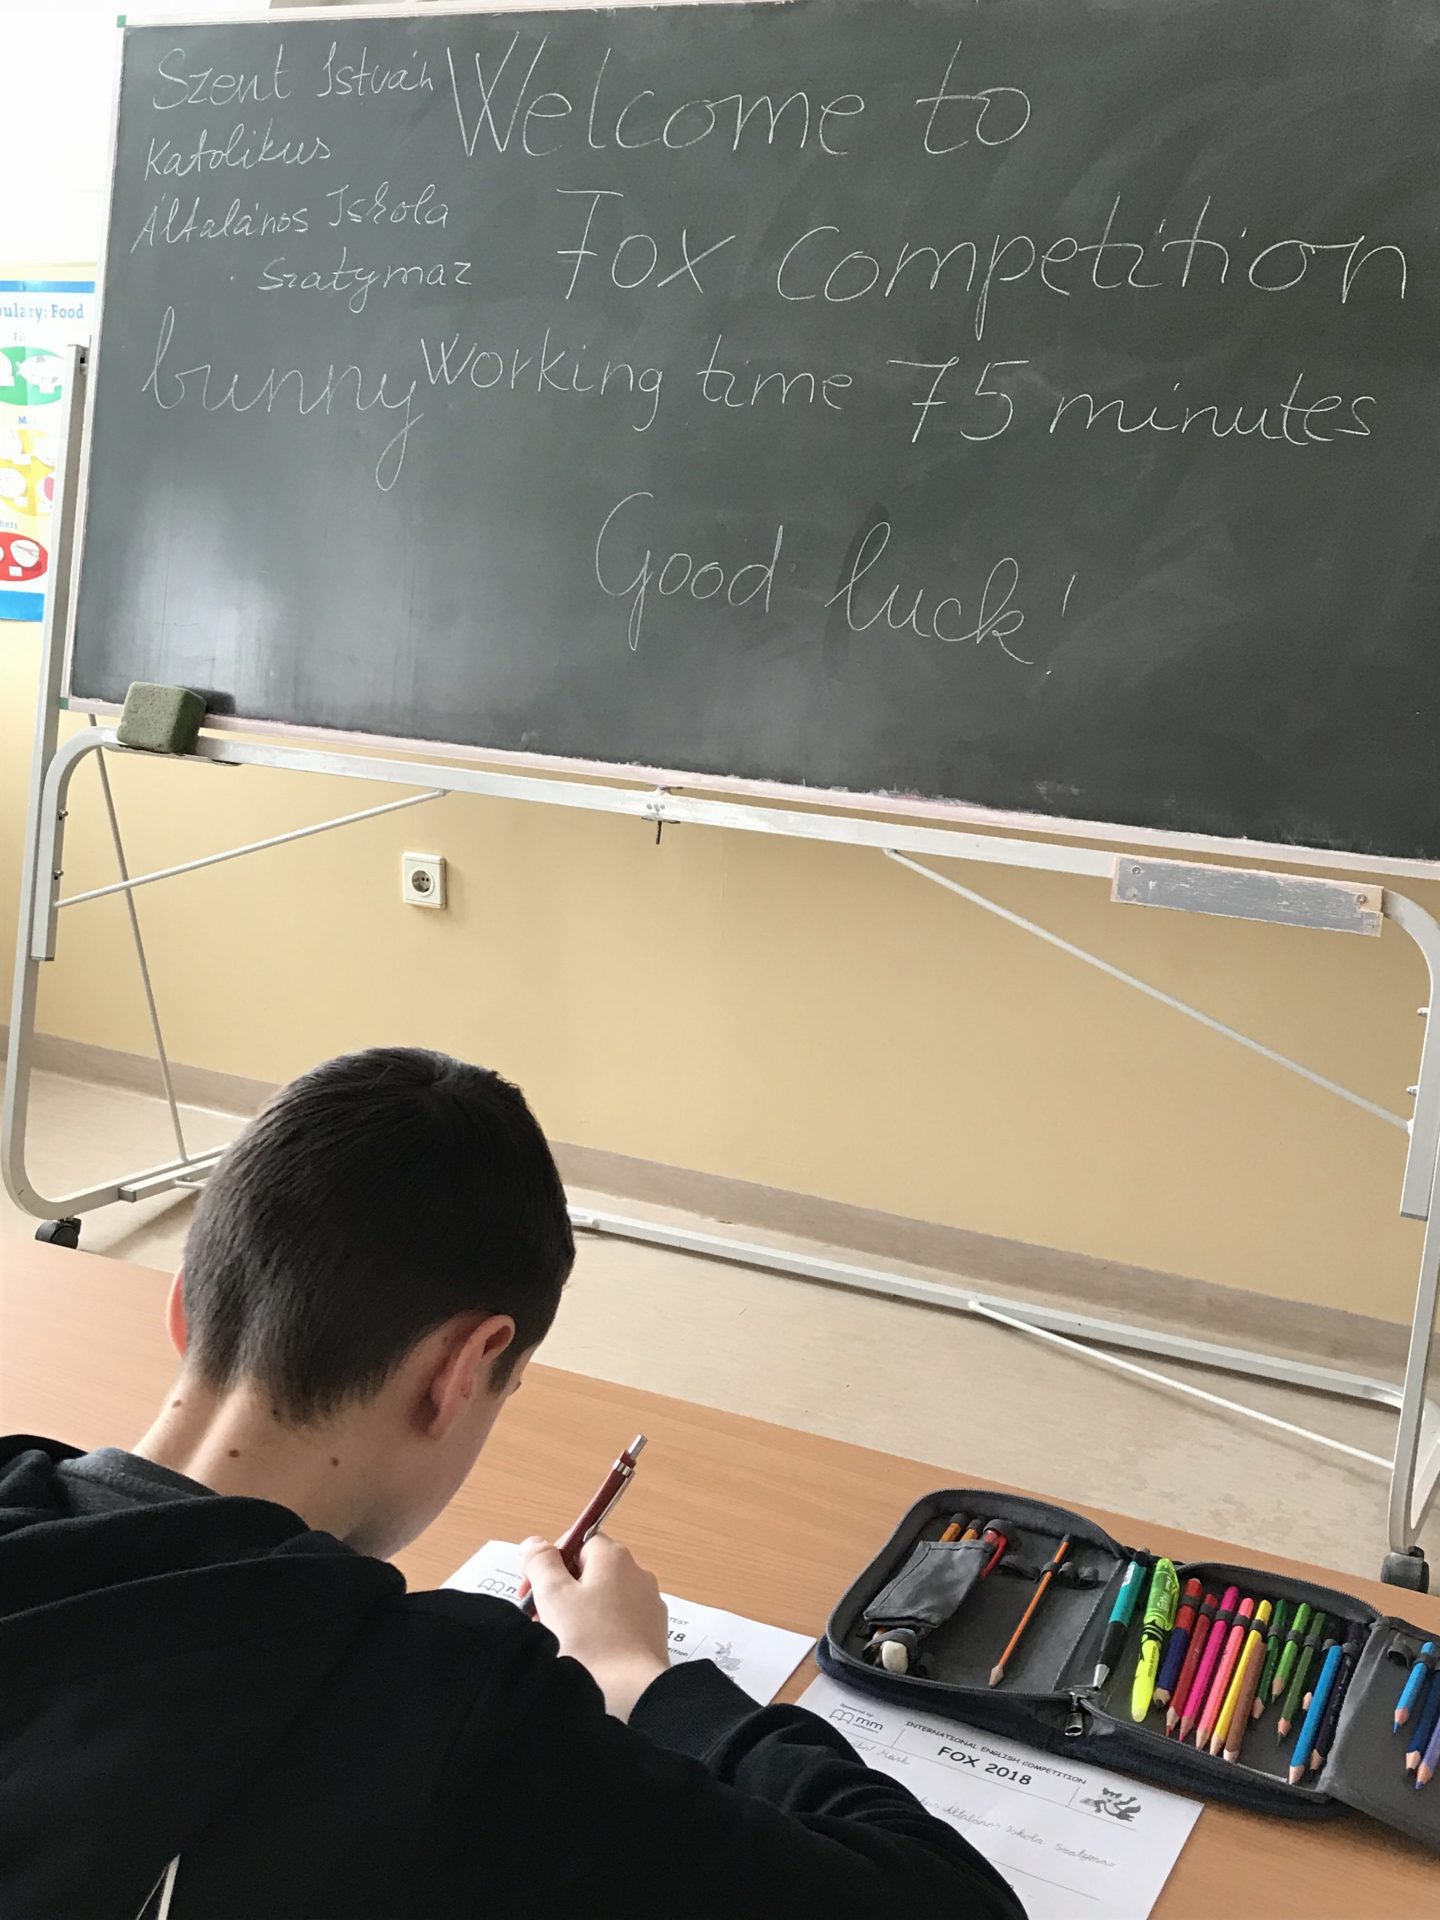 Szent István
Katolikus
Általános Iskola
Szatymaz
bunny
Welcome to
Fox competition
Working time 75 minutes
Good luck!
Food
mm
18
mm
INTERNATIONAL ENGLISH COMPETITION
FOX 2018
Általános Iskola Szatymaz